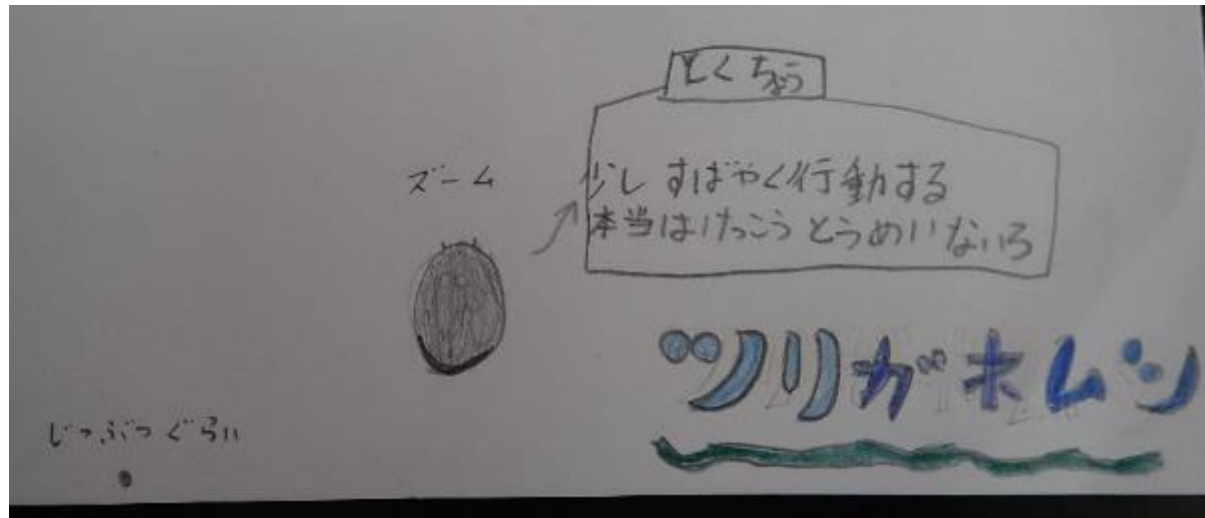 とくちょう
ズーム
少しすばやく行動する
本当はけっこうとうめいないろ
ツリガホムシ
じつぶつぐらい